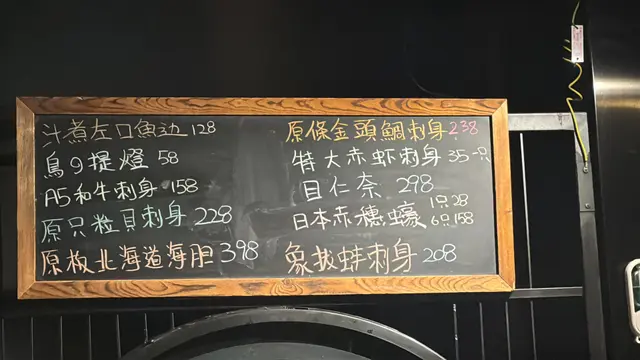 汁煮左口魚边 128
鳥の提燈 58
A5和牛刺身 158
原只粒貝刺身 228
原板北海道海胆 398
原條金頭鯛刺身 238
特大赤虾刺身 35一只
目仁奈 298
日本赤穗蠔 1只28 6只158
象拔蚌刺身 208